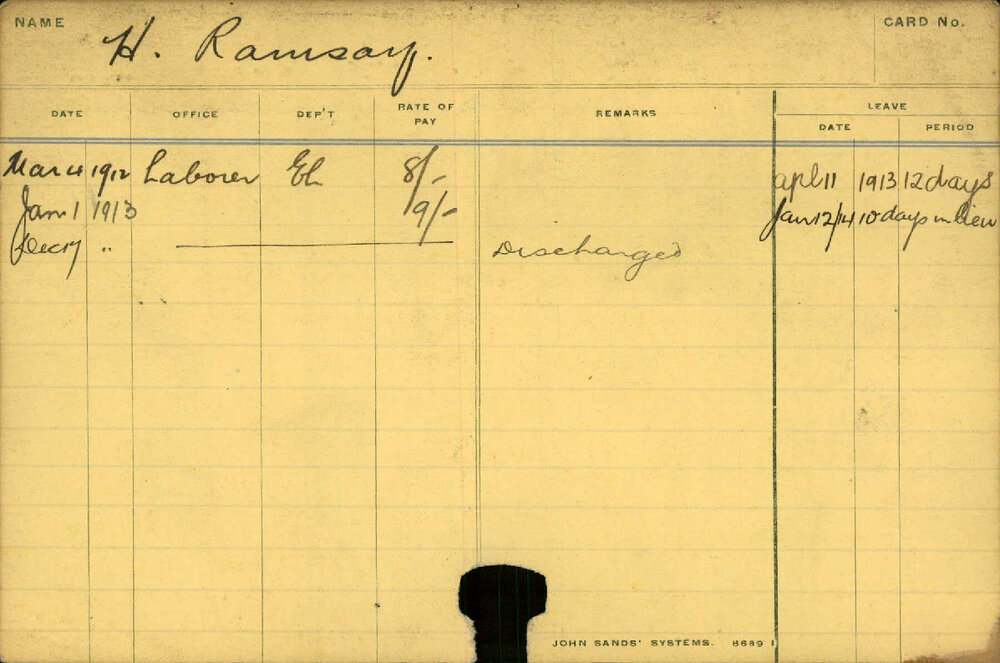 NAME H. Ramsay. CARD No.
DATE OFFICE DEP'T RATE OF PAY REMARKS LEAVE
DATE PERIOD
Mar 4 1912 Laborer El 8/- apl 11 1913 12 days
Jan 1 1913 9/- Jan 12/14 10 days in lieu
Dec 17 " Discharged
JOHN SANDS' SYSTEMS. 8689 1